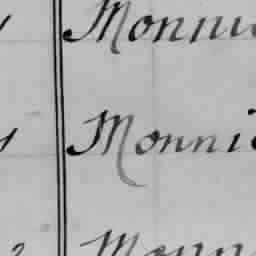 Monni
Monni
Monn